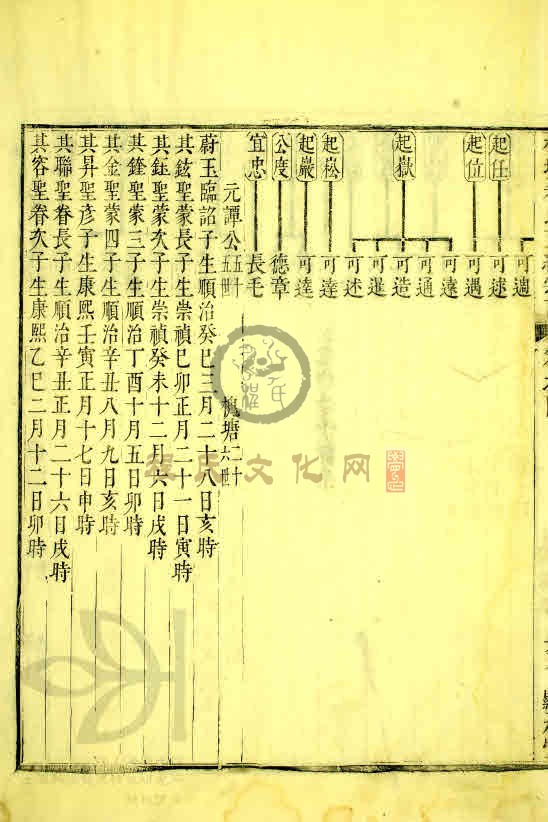 起任
起位
起嶽
起崧
起巖
公度
宜忠
可適
可逑
可遇
可遠
可通
可造
可選
可述
可達
可達
德章
長毛
元譚公五十五世 槐塘二十六世
蔚玉臨詔子生順治癸巳三月二十八日亥時
其鉉聖蒙長子生崇禎己卯正月二十一日寅時
其鈺聖蒙次子生崇禎癸未十二月六日戌時
其鋒聖蒙三子生順治丁酉十月五日卯時
其金聖蒙四子生順治辛丑八月九日亥時
其昇聖彥子生康熙壬寅正月十七日申時
其聯聖眷長子生順治辛丑正月二十六日戌時
其容聖眷次子生康熙乙巳二月十二日卯時
程氏文化网